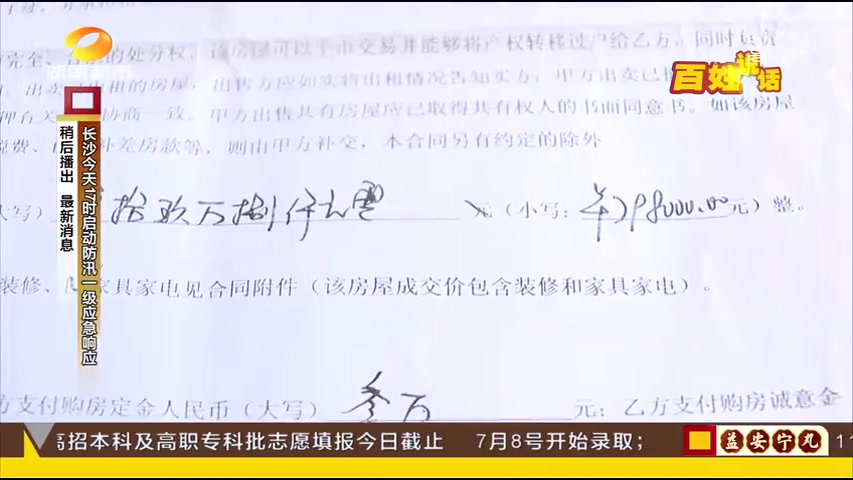 完全、合法的处分权,该房屋可以上市交易并能够将产权转移过户给乙方,同时负责
出租的房屋,出售方应如实将出租情况告知买方;甲方出卖已
协商一致。甲方出售共有房屋应已取得共有权人的书面同意书。如该房屋
补差房款等,则由甲方补交,本合同另有约定的除外
大写)拾玖万捌仟元 元(小写:298000.00元)整。
装修、家具家电见合同附件(该房屋成交价包含装修和家具家电)。
方支付购房定金人民币(大写)叁万元;乙方支付购房诚意金
百姓说话
长沙今天17时启动防汛一级应急响应
稍后播出 最新消息
高招本科及高职专科批志愿填报今日截止 7月8号开始录取;
益安宁丸